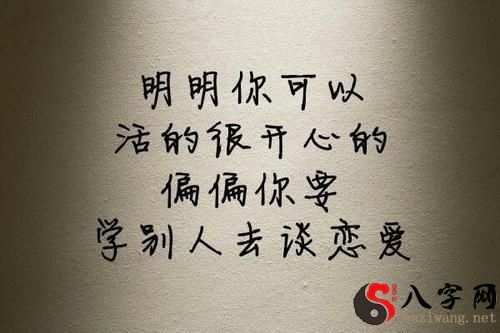 明明你可以
活的很开心的
偏偏你要
学别人去谈恋爱
八字网